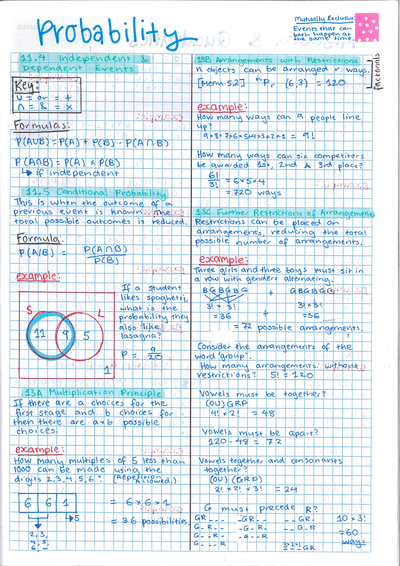 Probability
Mutually Exclusive
Events that can
both happen at
the same time.
11.4 Independent &
Dependent Events
Key:
∪ = or = +
∩ = & = ×
Formulas:
P(A∪B) = P(A) + P(B) - P(A∩B)
P(A∩B) = P(A) × P(B)
↳ if independent
11.5 Conditional Probability
This is when the outcome of a
previous event is known. The
total possible outcomes is reduced.
Formula:
P(A/B) = P(A∩B)
P(B)
example:
If a student
likes spaghetti,
what is the
probability they
also like
lasagna?
S L
11 9 5
1
P = 9
20
13A Multiplication Principle
If there are a choices for the
first stage and b choices for
then there are a×b possible
choices.
example:
How many multiples of 5 less than
1000 can be made using the
digits 2,3,4,5,6? (Repetition
Allowed.)
6 6 1 = 6×6×1
↳5 = 36 possibilities.
2,3,
13B Arrangements with Restrictions
n objects can be arranged r ways.
[Menu 5,2] ⁿPᵣ (6,3) = 120
factorials
example:
How many ways can 9 people line
up?
9×8×7×6×5×4×3×2×1 = 9!
How many ways can six competitors
be awarded 1st, 2nd & 3rd place?
6!
3! = 6×5×4
= 720 ways
13C Further Restrictions of Arrangements
Restrictions can be placed on
arrangements, reducing the total
possible number of arrangements.
example:
Three girls and three boys must sit in
a row with genders alternating.
BGBGBG + GBGBGB
3! × 3! 3! × 3!
= 36 + = 36
= 72 possible arrangements.
Consider the arrangements of the
word 'group'.
How many arrangements without
restrictions? 5! = 120
Vowels must be together?
(OU) GRP
4! × 2! = 48
Vowels must be apart?
120 - 48 = 72
Vowels together and consonants
together?
(OU) (GRP)
2! × 2! × 3! = 24
G must precede R?
GR _ _ _ _ GR _ _ _ _ GR _ 10 × 3!
G _ R _ _ _ G _ R _ _ _ GR = 60
G _ _ R _ _ G _ _ R ways
G _ _ _ R GR